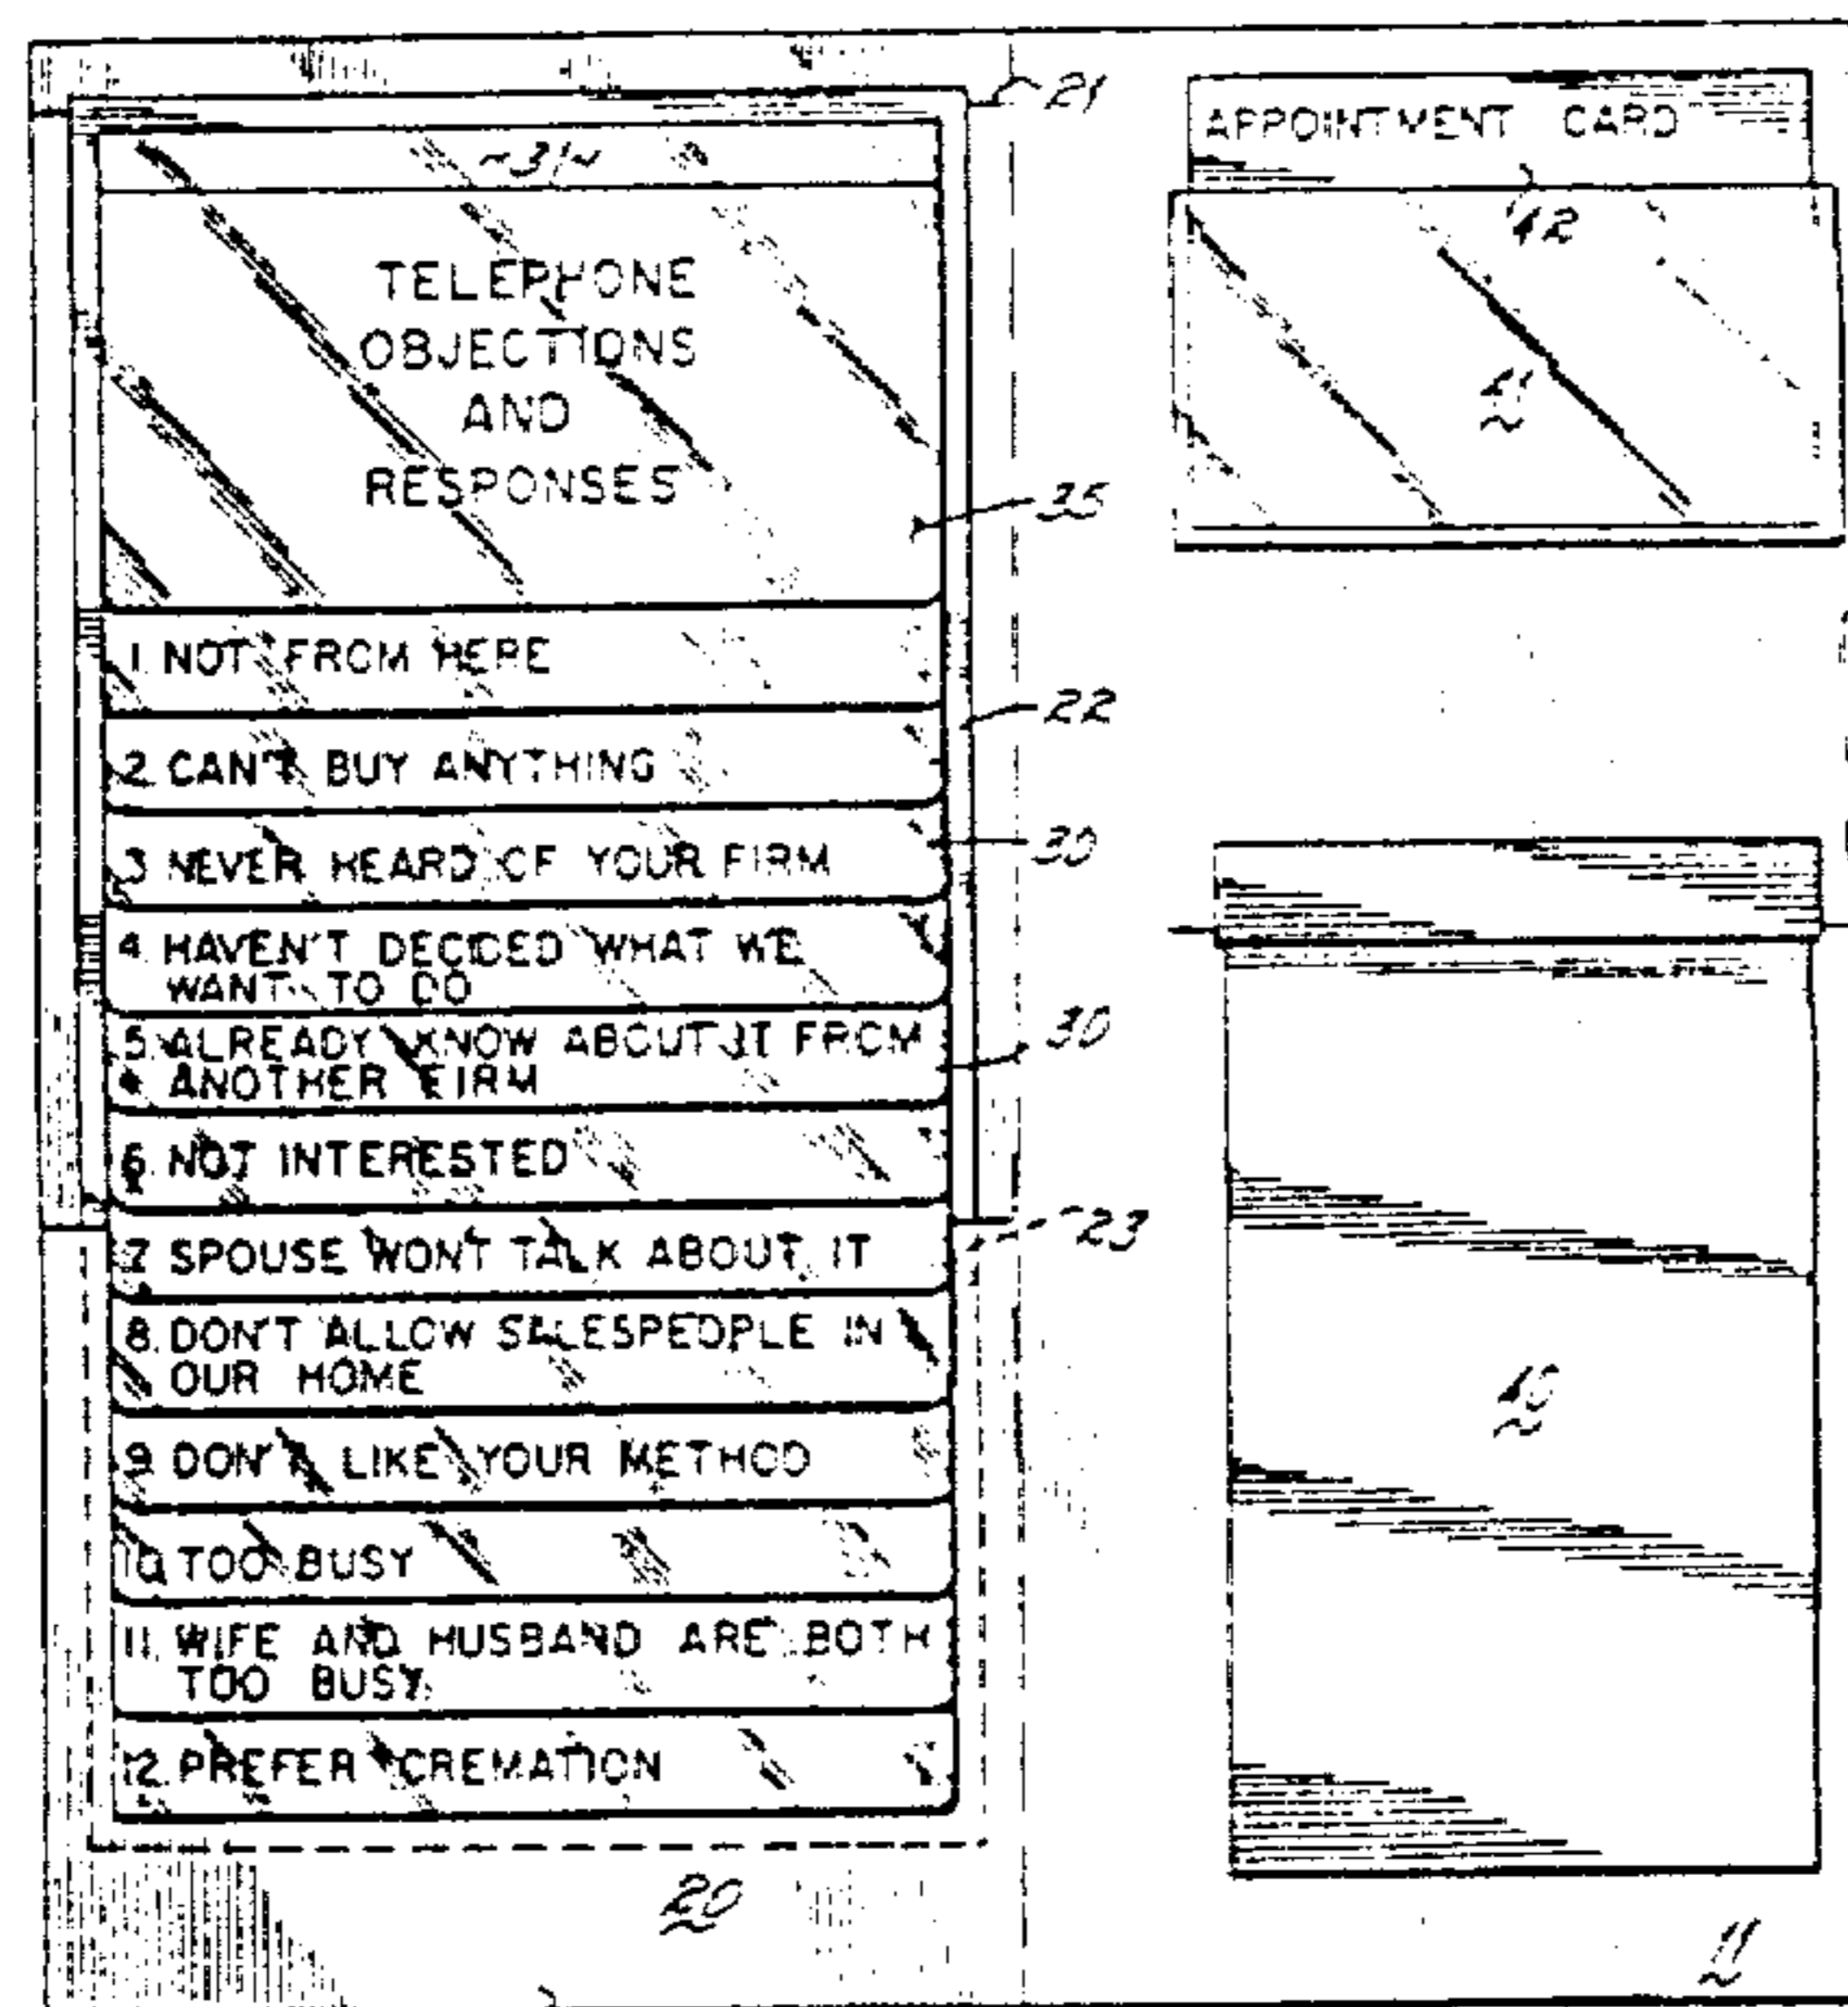 21
~31~
TELEPHONE
OBJECTIONS
AND
RESPONSES
35
1. NOT FROM HERE
22
2. CAN'T BUY ANYTHING
30
3. NEVER HEARD OF YOUR FIRM
4. HAVEN'T DECIDED WHAT WE
WANT TO DO
30
5. ALREADY KNOW ABOUT IT FROM
ANOTHER FIRM
6. NOT INTERESTED
23
7. SPOUSE WON'T TALK ABOUT IT
8. DON'T ALLOW SALESPEOPLE IN
OUR HOME
9. DON'T LIKE YOUR METHOD
10. TOO BUSY
11. WIFE AND HUSBAND ARE BOTH
TOO BUSY
12. PREFER CREMATION
20
APPOINTMENT CARD
42
41
40
11